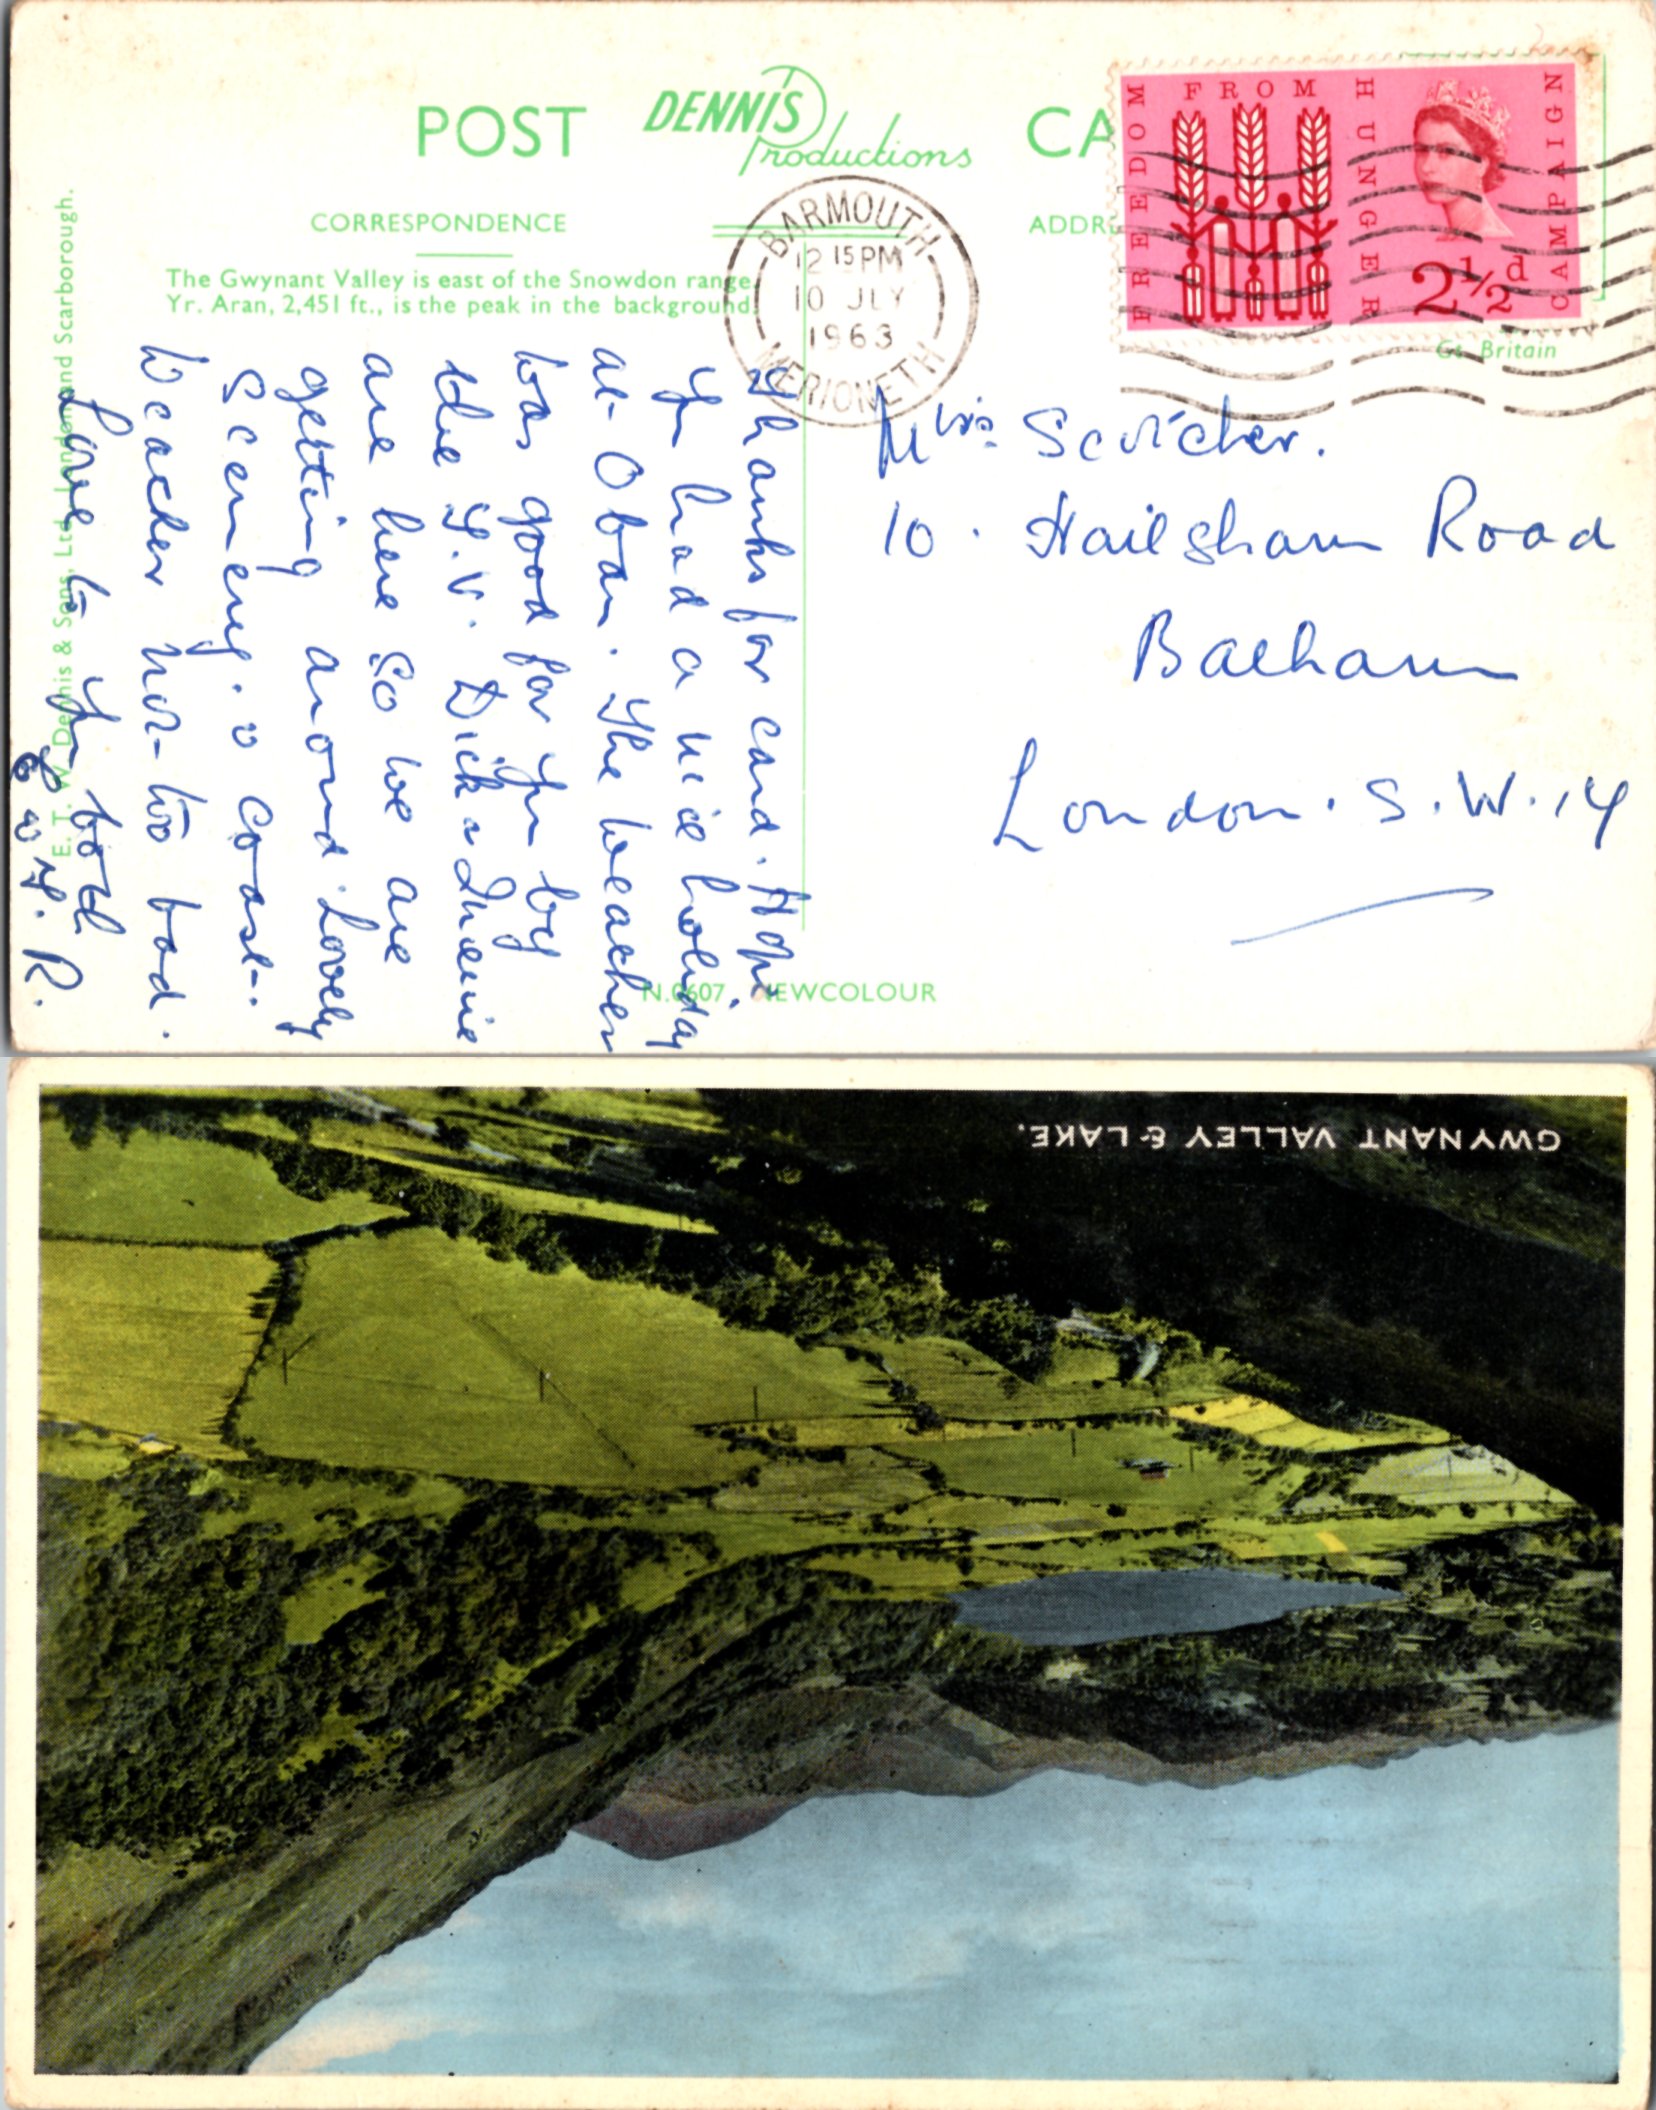 POST CA
DENNIS
Productions
CORRESPONDENCE
ADDR
The Gwynant Valley is east of the Snowdon range.
Yr. Aran, 2,451 ft., is the peak in the background.
E. T. W. Dennis & Sons, Ltd., London and Scarborough.
BARMOUTH
12 15 PM
10 JLY
1963
MERIONETH
FREEDOM FROM HUNGER CAMPAIGN
2½d
Gt. Britain
Thanks for card. Hope
you had a nice holiday
at Oban. The weather
was good for you by
the T.V. Dick &
are here so we are
getting around. Lovely
Scenery & coast.
Weather not too bad.
Love to you both
& H. R.
Mrs. Scutcher.
10. Hailsham Road
Balham
London. S.W.17
N.0607 NEWCOLOUR
GWYNANT VALLEY & LAKE.